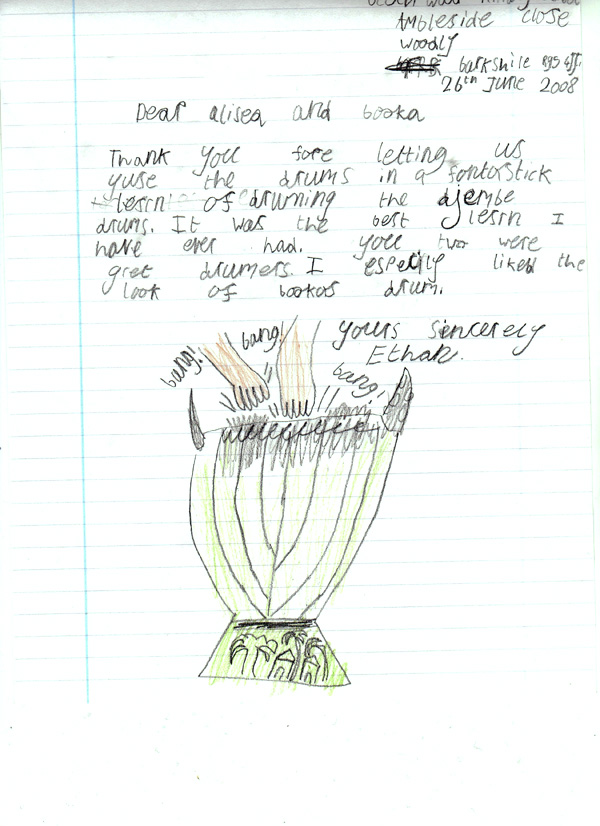 Ambleside close
woodly
barkshile rg5 4JJ.
26th June 2008
Dear alisea and booka
Thank you fore letting us
yuse the drums in a fontorstick
lesrn of druming the djembe
drums. It was the best lesrn I
have ever had. you two were
gret drumers. I especily liked the
look of bookas drum.
yours sincerely
Ethan.
bang!
bang!
bang!